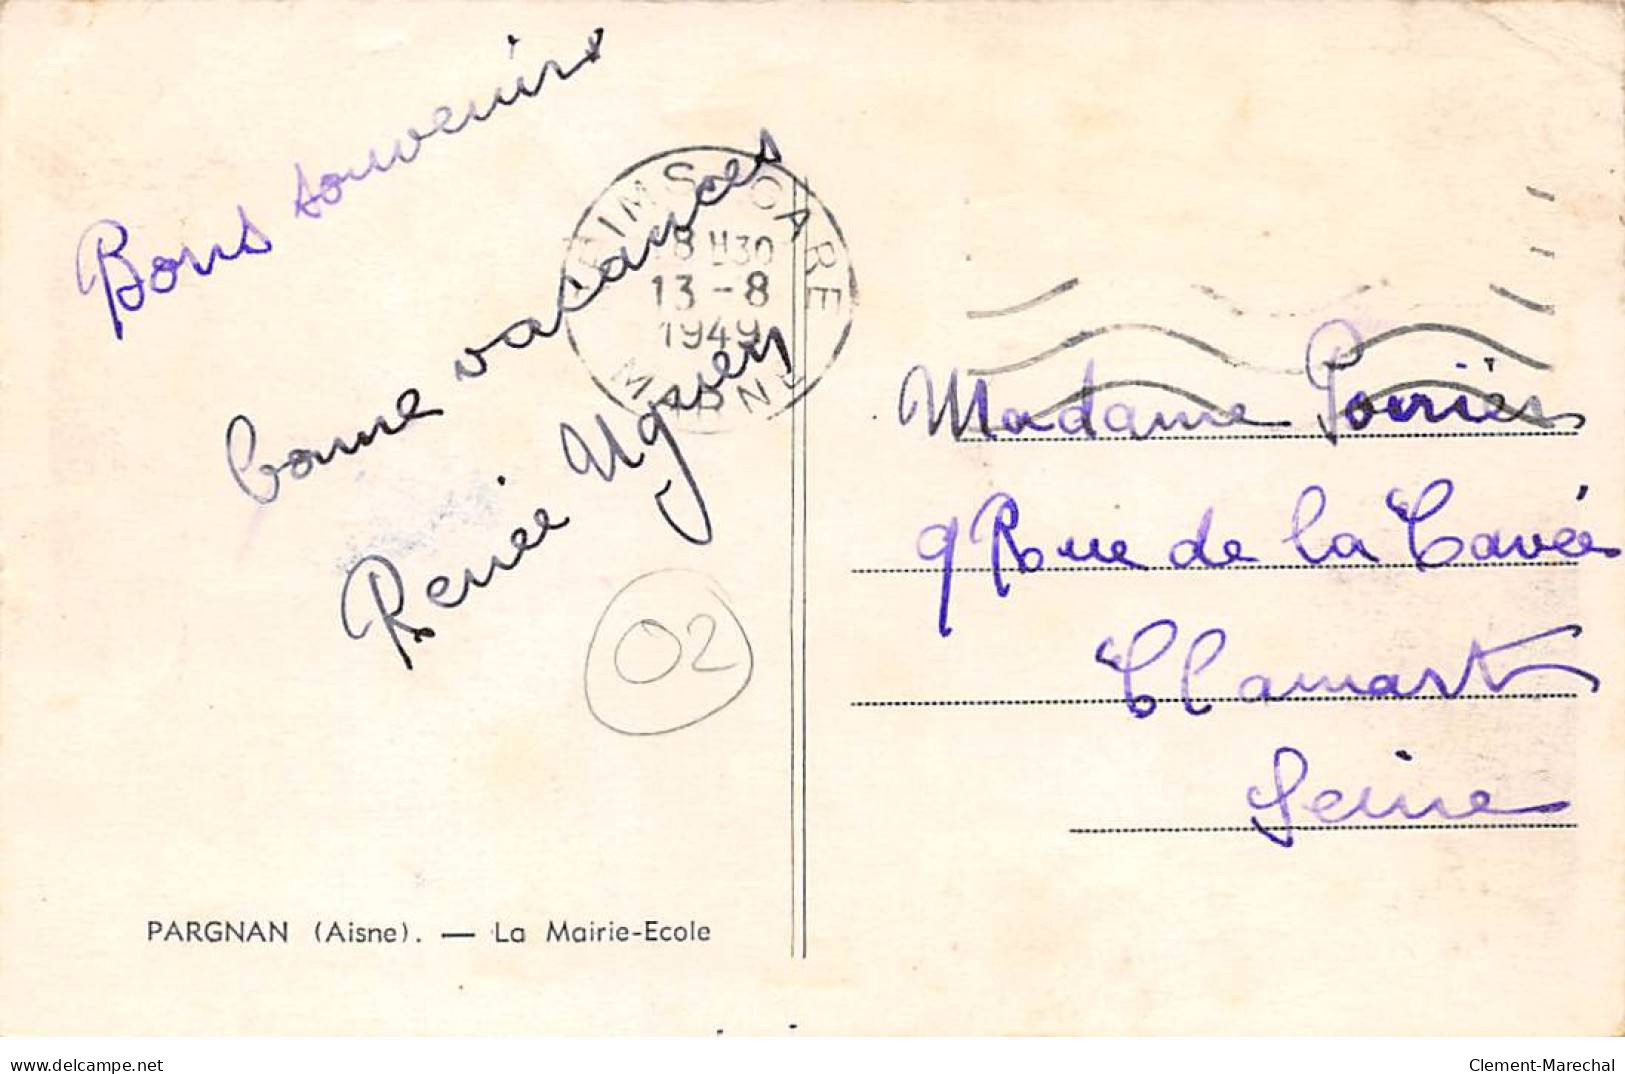 Bons souvenirs
bonne vacances
Renée
REIMS GARE
18 H30
13 - 8
1949
MARNE
02
Madame Poirier
9 Rue de la Cavée
Clamart
Seine
PARGNAN (Aisne). — La Mairie-Ecole
www.delcampe.net
Clement-Marechal